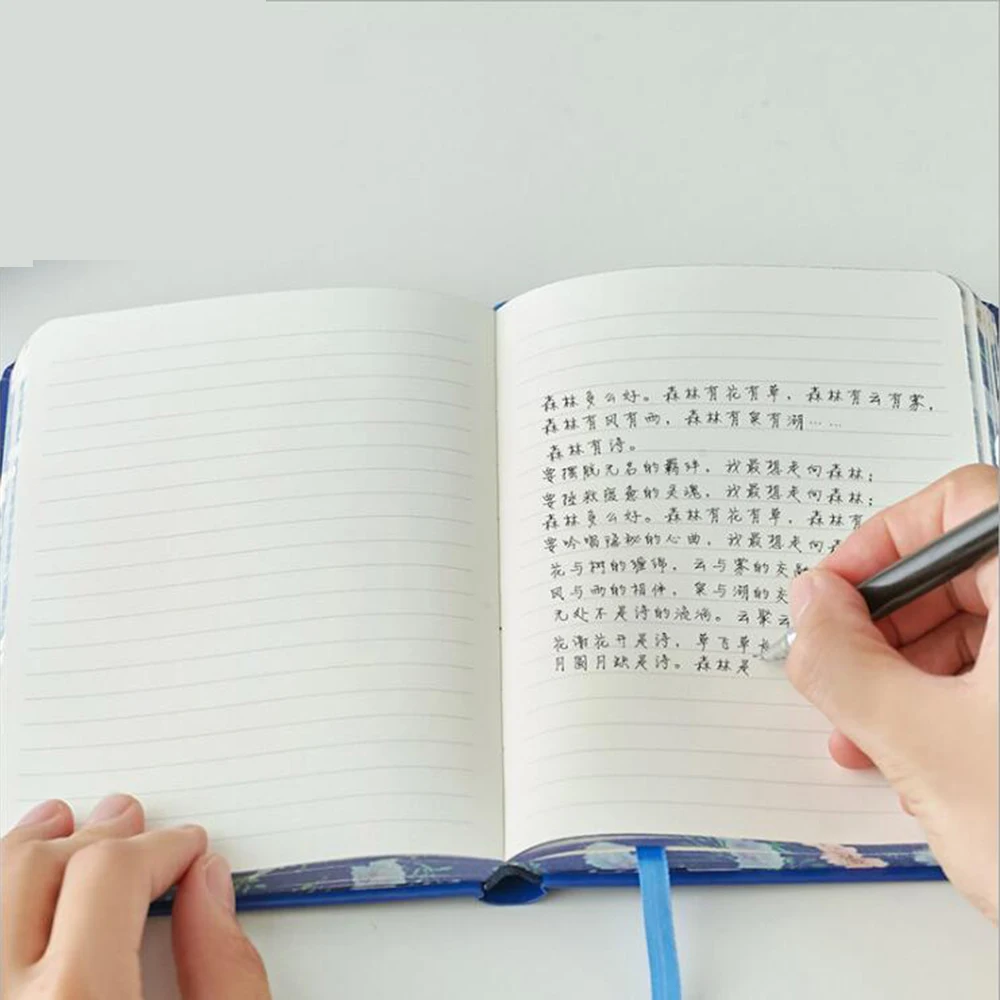 森林多么好。森林有花有草，森林有云有雾，
森林有风有雨，森林有泉有湖……
森林有诗。
要摆脱无名的羁绊，我最想走向森林；
要拯救疲惫的灵魂，我最想走向森林；
森林多么好。森林有花有草，森林有
要吟唱隐秘的心曲，我最想走向森
花与树的缠绵，云与雾的交融
风与雨的相伴，泉与湖的交
无处不是诗的流淌。云聚云
花谢花开是诗，草飞草
月圆月缺是诗。森林是